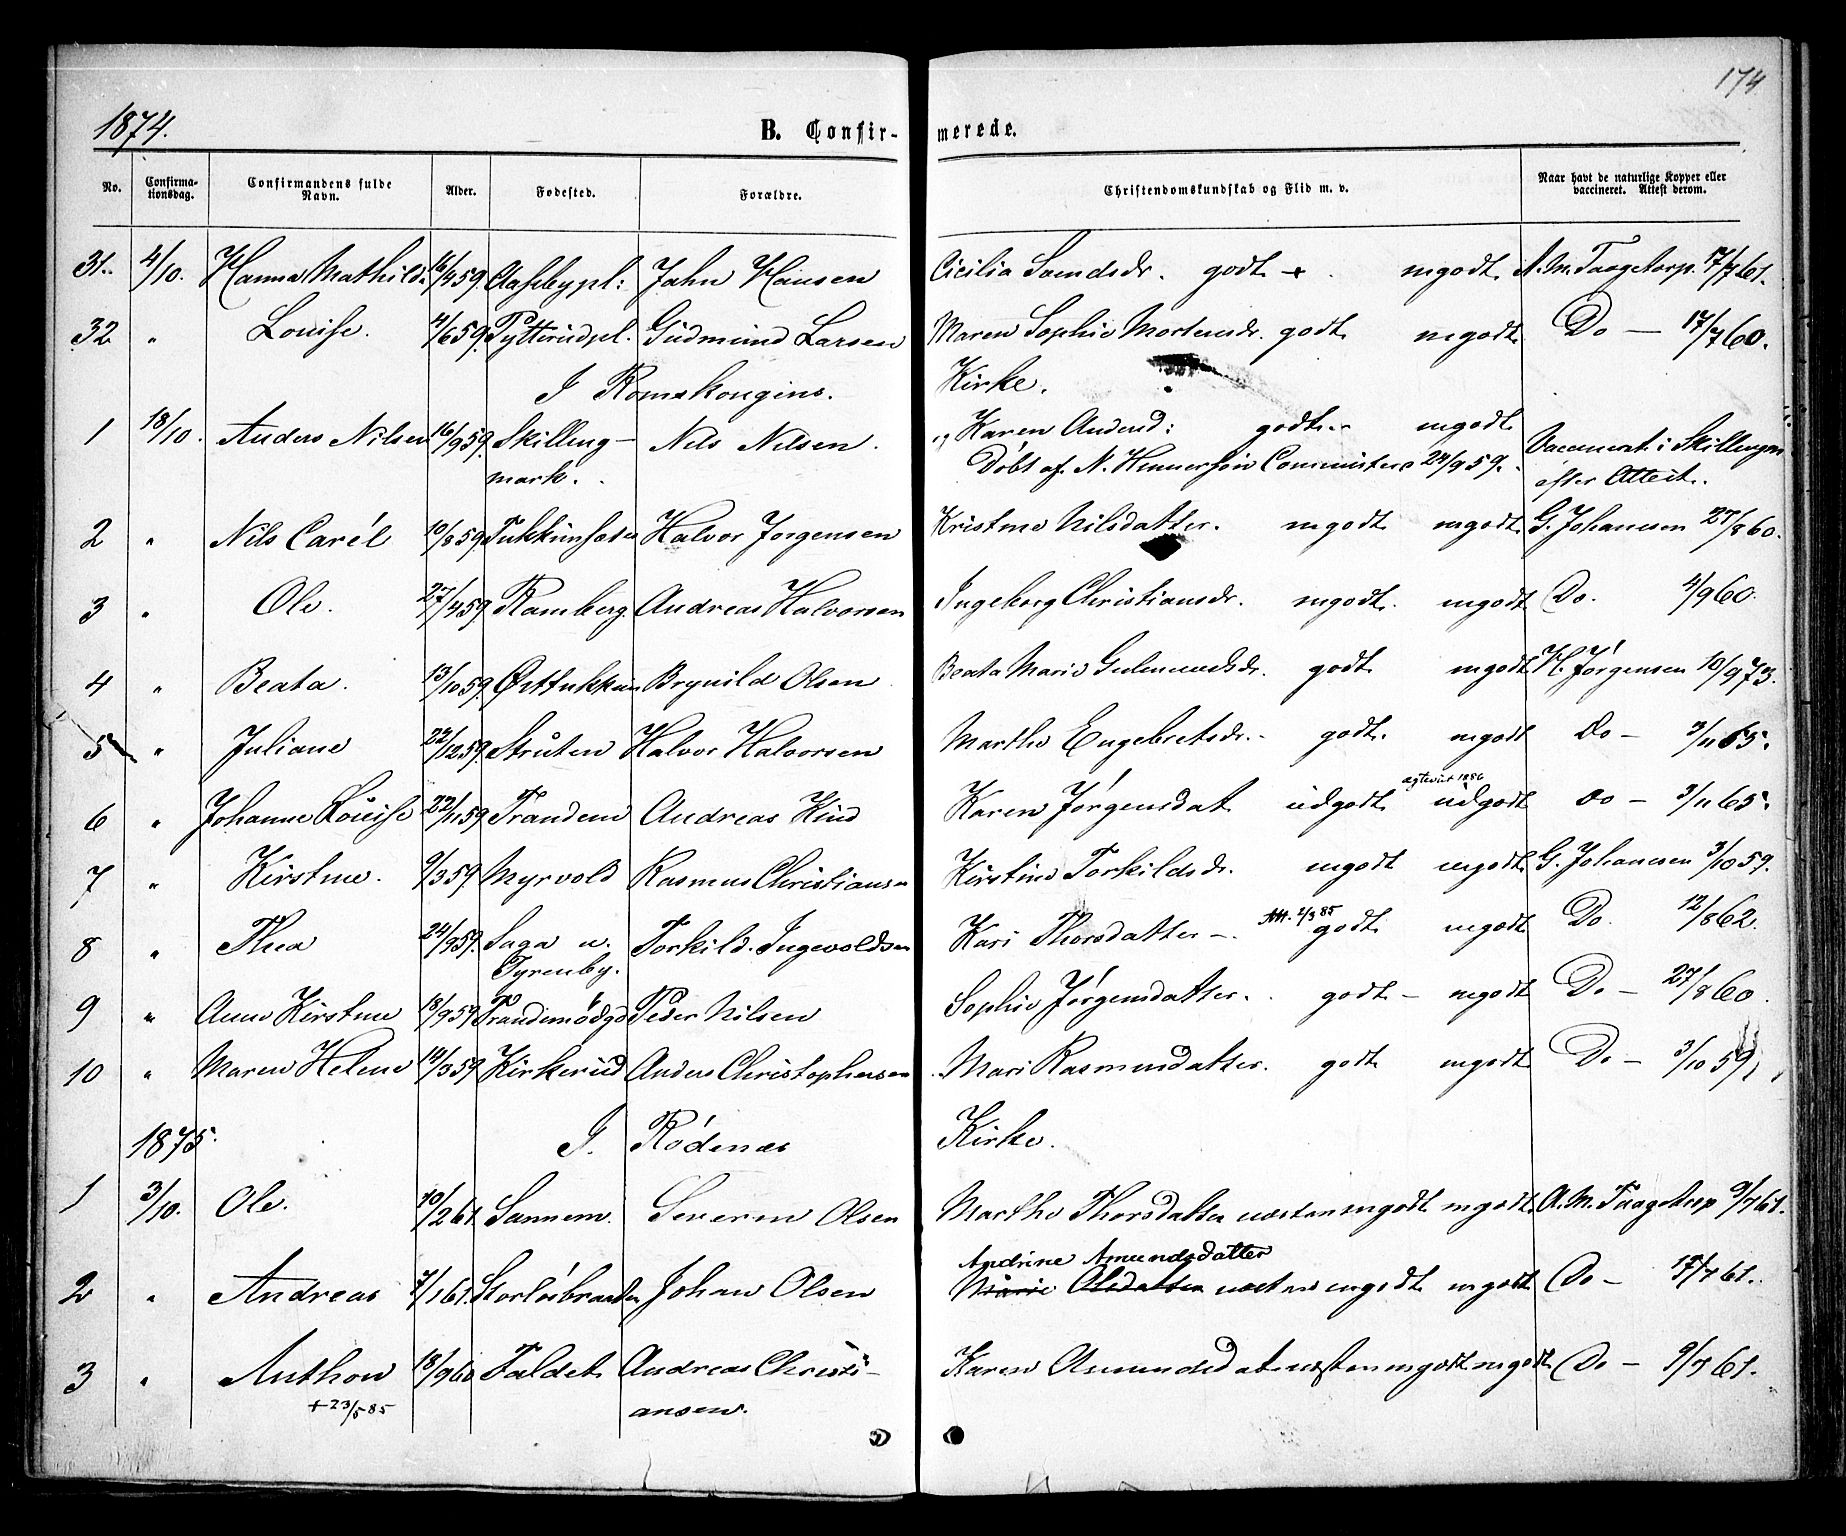 174
1874. B. Confir- merede.
No. Confirma-tionsdag. Confirmandens fulde Navn. Alder. Fødested. Forældre. Christendomskundskab og Flid m. v. Naar havt de naturlige Kopper eller vaccineret. Attest derom.
31. 4/10. Hanna Mathilde 16/4 59 Aasebypl: Jahn Hansen Cicilia Svendsdr. godt mgodt A. M. Taagetorp. 17/7 61.
32 " Louise. 11/6 59. Tytterudpl. Gudmund Larsen Maren Sophie Mortensdr. godt mgodt Do — 17/7 60.
I Romskougins. Kirke.
1 18/10. Anders Nilsen 16/9 59. Skilling- Nils Nilsen. Karen Andersd: godt mgodt Vaccinerat i Skillingm
mark. Døbt af N. Comminister 24/9 59. efter Attest.
2 " Nils Carél 10/8 59 Halvor Jørgensen Kristine Nilsdatter. mgodt mgodt G. Johannesen 27/8 60.
3 " Ole. 27/4 59 Ramberg. Andreas Halvorsen Ingeborg Christiansdr. mgodt. mgodt Do. 4/9 60.
4 " Beata. 13/10 59. Brynild Olsen Beata Marie Gulmundsdr. godt mgodt H. Jørgensen 10/9 73.
5 " Juliane 22/12 59. Struten Halvor Halvorsen Marthe Engebretsdr. godt. mgodt Do — 3/11 65.
ægteviet 1886
6 " Johanne Louise 22/11 59 Trandem Andreas Kind Karen Jørgensdat udgodt udgodt Do — 3/11 65.
7 " Kirstine. 9/3 59 Myrvold Rasmus Christiansen Kirstine Torkildsdr. mgodt mgodt G. Johannesen 3/10 59.
Att. 2/3 85
8 " Thea 24/9 59. Saga u. Torkild Ingevoldsen Kari Thorsdatter — godt mgodt Do. 12/8 62.
Tyrenby.
9 " Anne Kirstine 18/9 59 Trandemødgd Peder Nilsen Sophie Jørgensdatter. godt — mgodt Do — 27/8 60.
10 " Maren Helene 14/3 59 Kirkerud Anders Christophersen Mari Rasmusdatter. godt mgodt Do — 3/10 59,
1875. I. Rødenæs Kirke.
1 3/10. Ole. 10/2 61 Sannem. Severin Olsen Marthe Thorsdatter næsten mgodt mgodt A. M. Taagetorp 9/7 61.
Andrine Amundsdatter
2 " Andreas 7/1 61. Johan Olsen Marie Olsdatter næsten mgodt mgodt Do — 17/7 61.
3 " Anthon 18/9 60 Faldet Andreas Christi- Karen Asmundsdat næsten mgodt mgodt Do — 9/7 61.
+ 23/5 85 ansen.